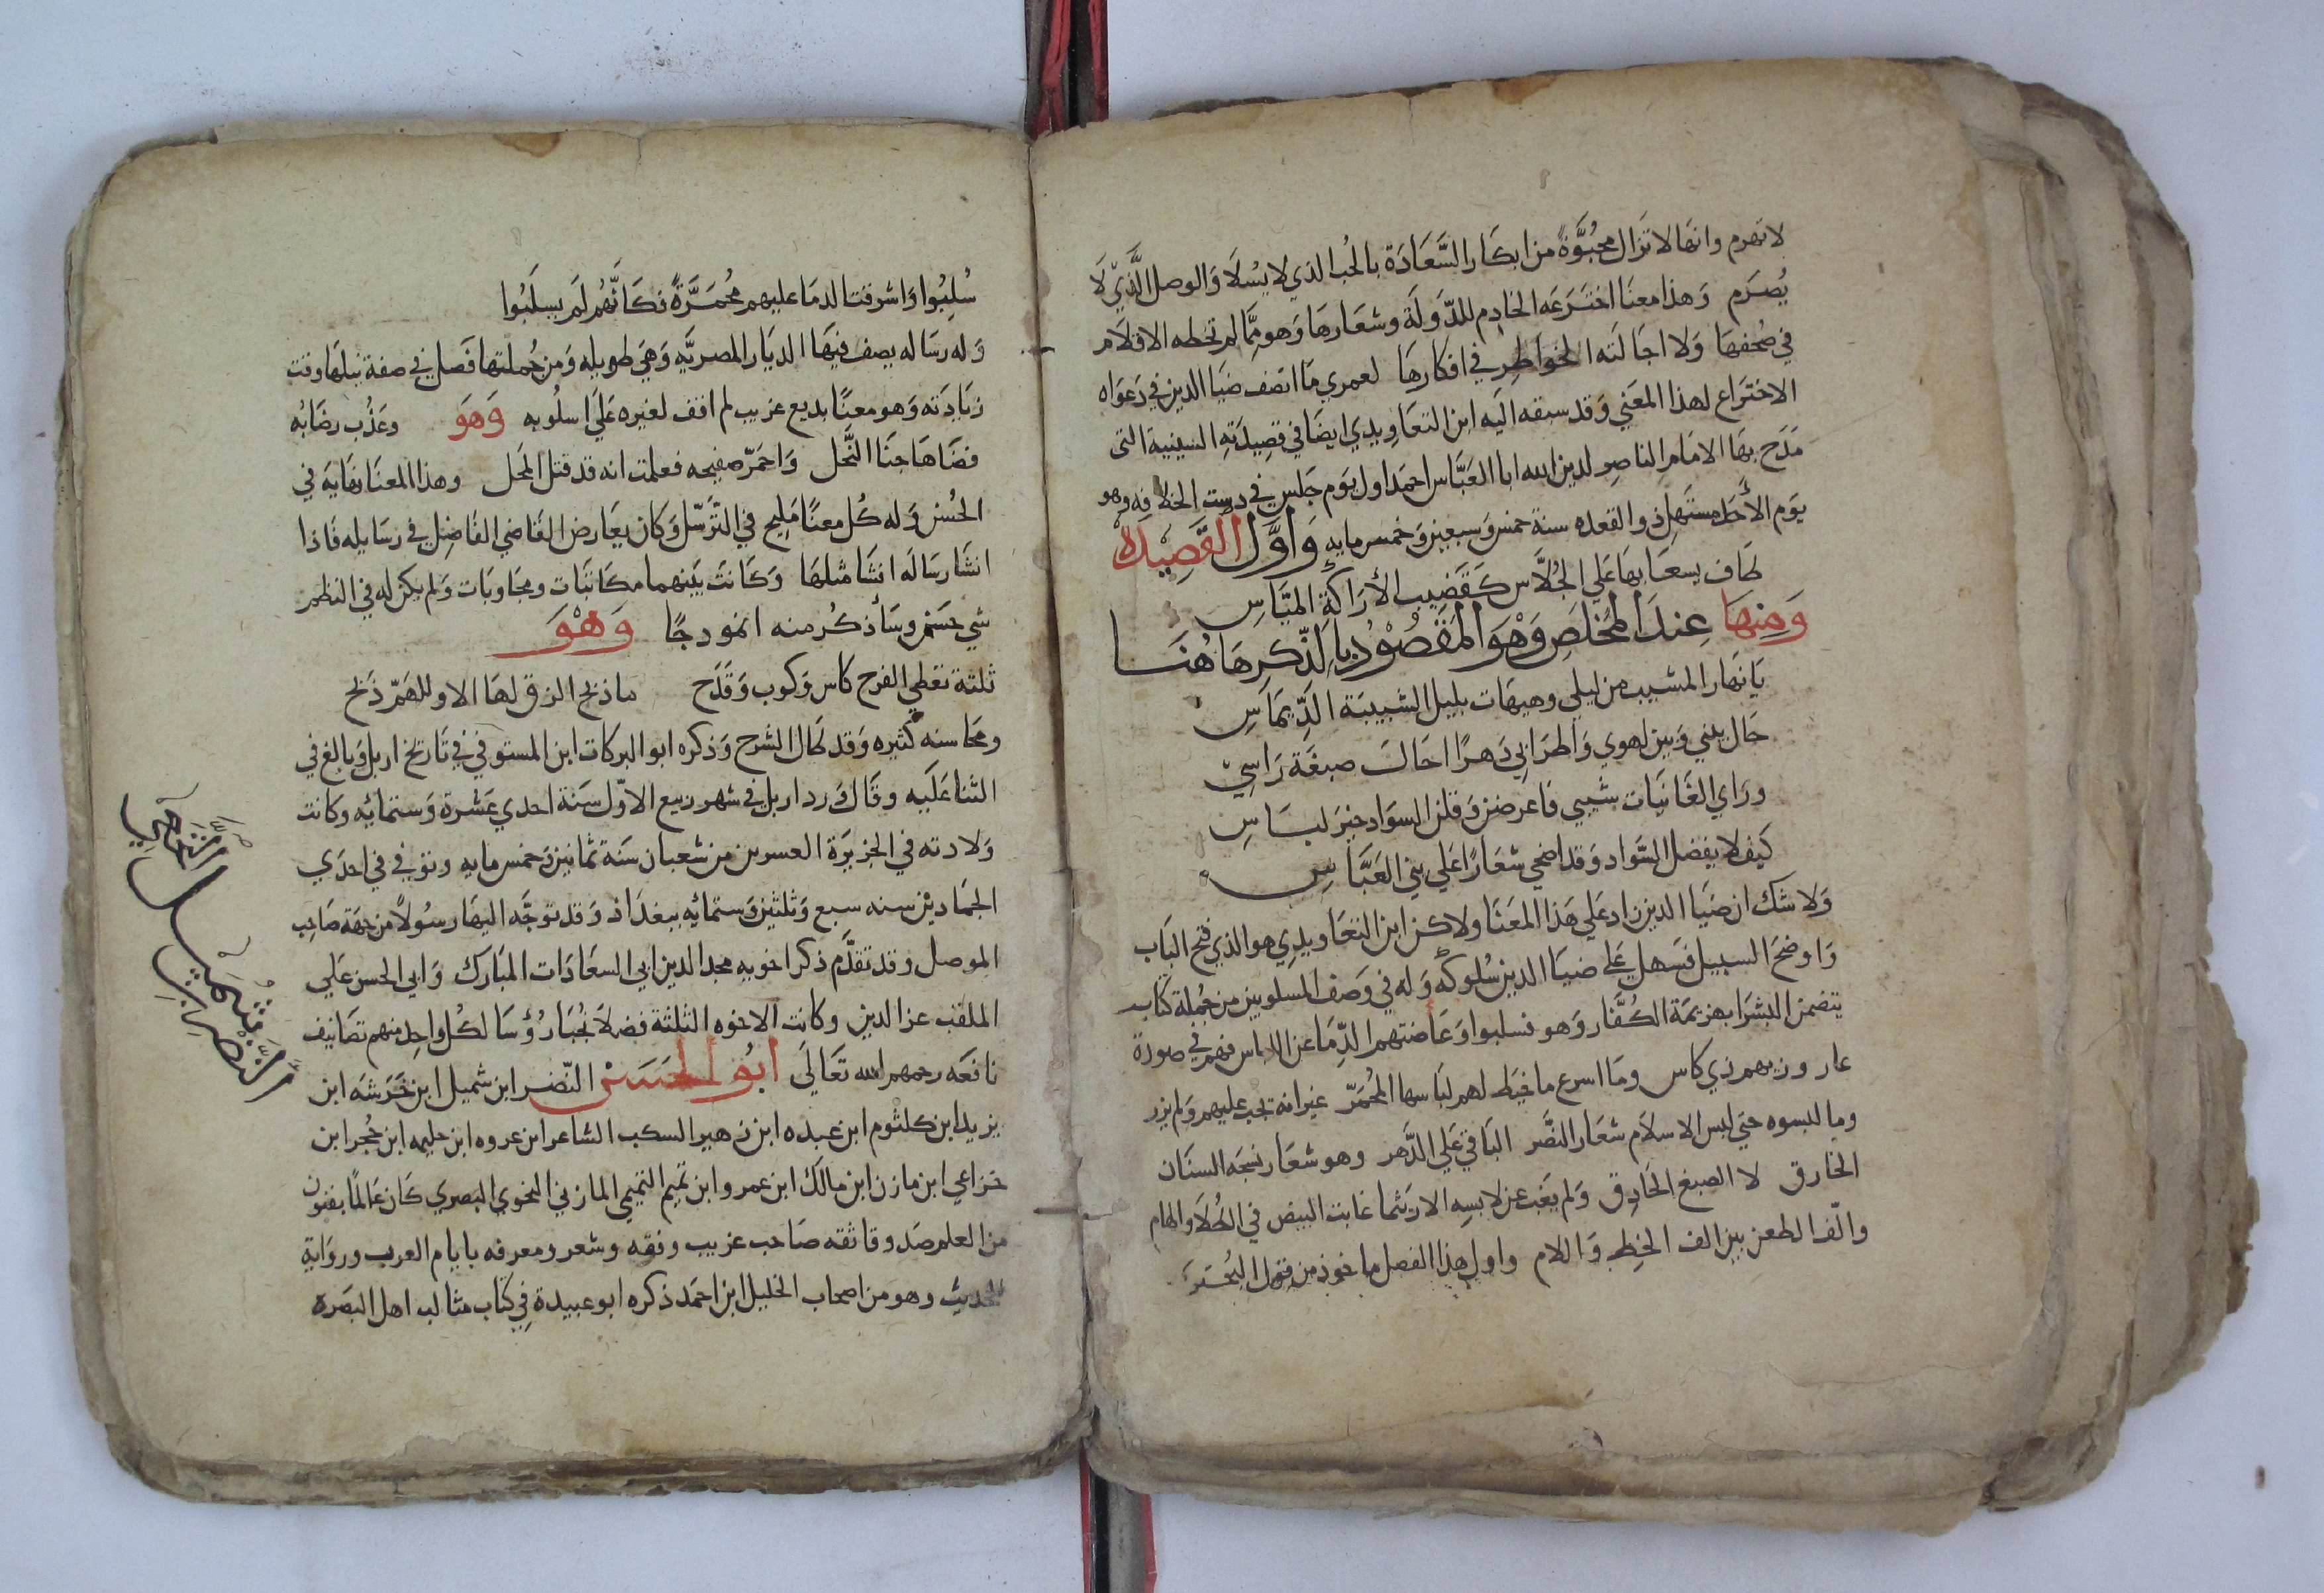 لا تهرم وانها لا تزال محبُوَّةً من ابكار السَّعَادَة بالحُب الذي لا يسْلَا وَالوصل الَّذيْ لَا
يُصْرَم وَهذا معنَا اخترَعَه الخادِم للدّوَلَة وشعَارهَا وَهو مِمَّا لم تخطه الاقلَام
في صُحفهَا وَلا اجَالَته الخواطِر في افكارهَا لعمري مَا انصف ضيَا الدين في دَعوَاه
الاختَراع لهذا المعَني وَقد سبقه اليَه ابن التعَاوِيذي ايضَا في قصِيدَتهِ السينية التى
مَدَح بهَا الامَام الناصِر لدين الله ابا العَبَّاس احمَد اول يوَم جَلس في دست الخلافه وهو
يوَم الأحَد مستَهل ذو القعده سنة خمس وَسبعين وَخمس مايه وَاوَّل القَصِيْدَه
طَاف يسعَا بهَا عَلي الجُلَّاس كَقَضِيب الأرَاكَةِ الميَّاسِ
وَمِنهَا عِندَ المخْلَصِ وَهْوَ المَقْصُوْدُ بِالذِّكرِ هَاهُنَا
يَا نهَار المشيب من ليلي وهيهَات بليل الشبيبَة الدِّيمَاسِ
حَال بيني وَبين لهوي وَاطرَابي دَهرًا احَالَت صبغَة رَاسِيْ
ورَاي الغَانيَات شيبي فاعرضن وَقلن السوَاد خيرَ لبَاسِ
كيف لا يفضل السَّواد وَقد اضحي شعَارًا عَلي بني العَبَّاسِ
وَلا شك ان ضيَا الدين زاد عَلي هَذا المعَنا ولاكن ابن التعَاويذي هو الذي فتح البَاب
وَاوضحَ السبيل فسَهل عَلى ضيَا الدين سُلوكه وَله في وَصف المسلوبين من جُملة كتاب
يتضمن البشرَا بهزيمَة الكُفَّار وَهو فسلبوا وَعَاضتهم الدِّمَا عن اللباس فهم في صورَة
عار وزيهم زي كاس ومَا اسرع ما خيَط لهم لبَاسها المُحمَرّ غيرانه تجب عليهم وَلم يزر
وما لبسوه حتي لبس الاسلَام شعَار النصَّر البَاقي عَلي الدَّهر وهو شعَار نسجَه السنَان
الخارق لا الصبغ الحَاذِق وَلم يغَب عن لابسِه الا ريَثما غابت البيض في الطُلَا والهام
والّف الطعن بين الف الخطِ وَاللام واول هذا الفصل ماخوذ من قول البُحترَي
سُلِبُوا وَاشرقت الدمَا عليهم مُحمَرَّةً فكَانَّهُم لَم يسلَبُوا
وَله رسَاله يصف فيهَا الديَار المصريَّه وَهي طويله وَمن جُملتها فَصل في صفة نيلهَا وقت
زيَادَته وَهو معنًا بديع غريب لم اقف لغيره عَلي اسلُوبه وَهوَ وعَذُب رضَابُه
فضَاهَا جنَا النَّحل وَاحمَرّ صفيحه فعلمت انه قد قتل المَحل وهذا المعنَا نهَايَة في
الحُسن وَله كُل معنًا مَليح في التَّرَسّل وَكان يعَارض القَاضي الفَاضِل في رسَايله فَاذا
انشَا رسَالَه انشَا مثلهَا وَكَانت بيَنهما مكاتبَات ومجَاوبَات وَلم يكن له في النظم
شي حَسَن وسَأذكُر منه انموذجًا وَهْوَ
ثلثة تعَطي الفرح كَاس وَكوب وَقَدَح ما ذبح الزق لهَا الا وللهَمّ ذَبح
ومحَاسنه كثيره وَقد طَال الشرح وَذكره ابو البركَات ابن المستوفي في تَاريخ اربل وَبالغ في
الثنا عَلَيه وقَال وَرد اربل في شهر ربيع الاوّل سَنة احدي عَشرة وَستمائِه وكانت
وَلادته في الجزيرَة العسرين من شعبان سَنة ثمانين وَخمس مايه وتوفي في احدَي
الجمَادَيْن سنه سبع وَثلثين وَستمائِه ببغدَاذ وَقد توجَّه اليهَا رسُولاً من جهَة صَاحِب
الموصل وقد تقدَّم ذكر اخويه مجد الدين ابي السعَادَات المبَارك وَابي الحسن عَلي
الملقب عز الدين وكانت الاخوه الثلثة فضلَا نُجَبَا رُؤسَا لكُل واحِد منهم تصَانيف
نافعَه رحمهم الله تَعَالَي ابُو الحَسَن النّضر ابن شميل ابن خَرَشَه ابن
يزيد ابن كلثوم ابن عبدَه ابن زهير السكب الشاعر ابن عروه ابن حليمه ابن حُجر ابن
خزاعي ابن مازن ابن مالك ابن عمرو ابن تميم التميمي المازني النحوي البصري كَان عَالمًا بفنون
من العلم صَدوقا ثقه صَاحب غريب وفقه وشعر ومعرفه بايام العرب وروَاية
الحديث وهو من اصحاب الخليل ابن احمَد ذكره ابو عبيدة في كتَاب مثالب اهل البَصَره
النَّضْر ابن شُمَيْل النَّحْوِي